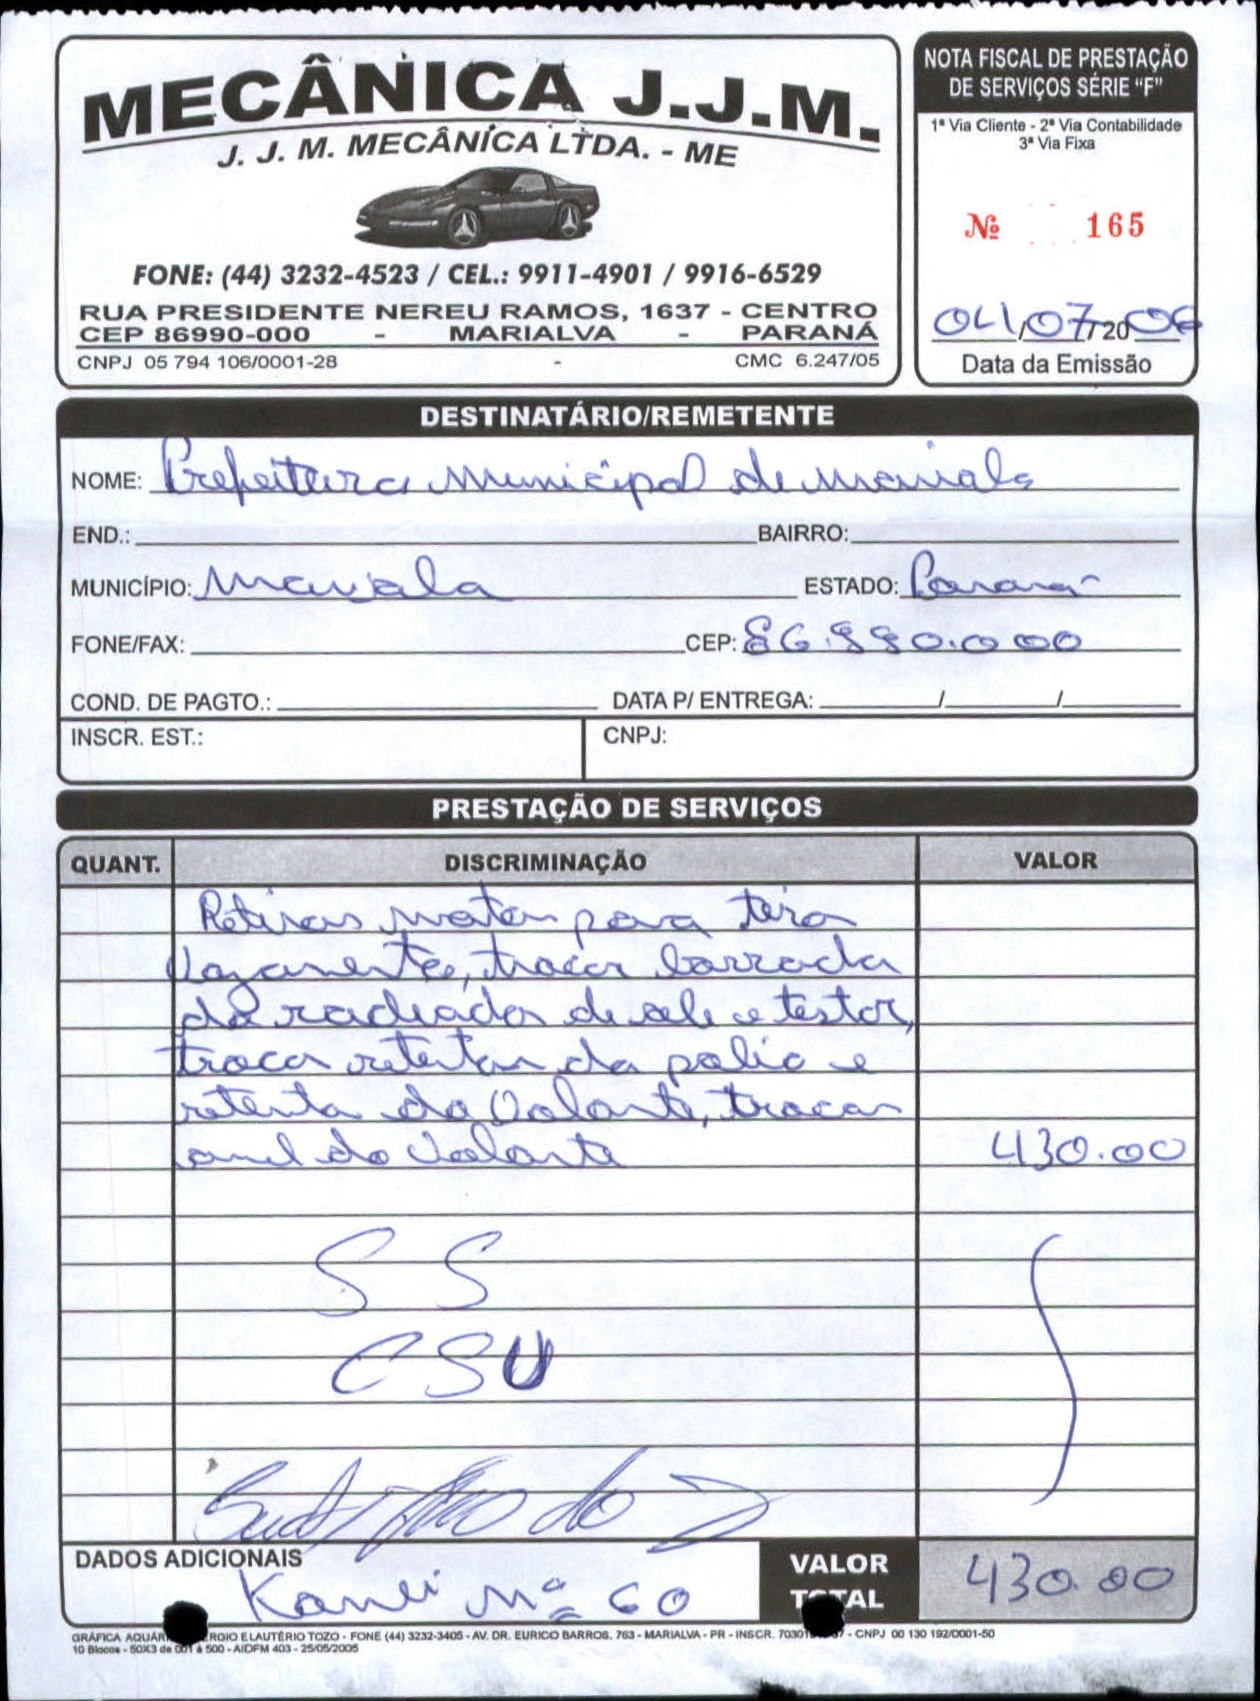 MECÂNICA J.J.M.
J. J. M. MECÂNICA LTDA. - ME
FONE: (44) 3232-4523 / CEL.: 9911-4901 / 9916-6529
RUA PRESIDENTE NEREU RAMOS, 1637 - CENTRO
CEP 86990-000 - MARIALVA - PARANÁ
CNPJ 05 794 106/0001-28 - CMC 6.247/05
NOTA FISCAL DE PRESTAÇÃO
DE SERVIÇOS SÉRIE “F”
1ª Via Cliente - 2ª Via Contabilidade
3ª Via Fixa
Nº 165
04/07/2006
Data da Emissão
DESTINATÁRIO/REMETENTE
NOME: Prefeitura Municipal de
END.: BAIRRO:
MUNICÍPIO: ESTADO: Paraná
FONE/FAX: CEP: 86.990.000
COND. DE PAGTO.: DATA P/ ENTREGA: / /
INSCR. EST.: CNPJ:
PRESTAÇÃO DE SERVIÇOS
QUANT. DISCRIMINAÇÃO VALOR
motor para
trocar
do radiador de e testar,
troca da polia e
do Volante, trocar
anel do Volante 430.00
S S
C S U
DADOS ADICIONAIS
Nº 60
VALOR
TOTAL 430.00
ELAUTÉRIO TOZO - FONE (44) 3232-3405 - AV. DR. EURICO BARROS, 763 - MARIALVA - PR - INSCR. - CNPJ 00 130 192/0001-50
10 Blocos - 50X3 de 001 à 500 - AIDFM 403 - 25/05/2005